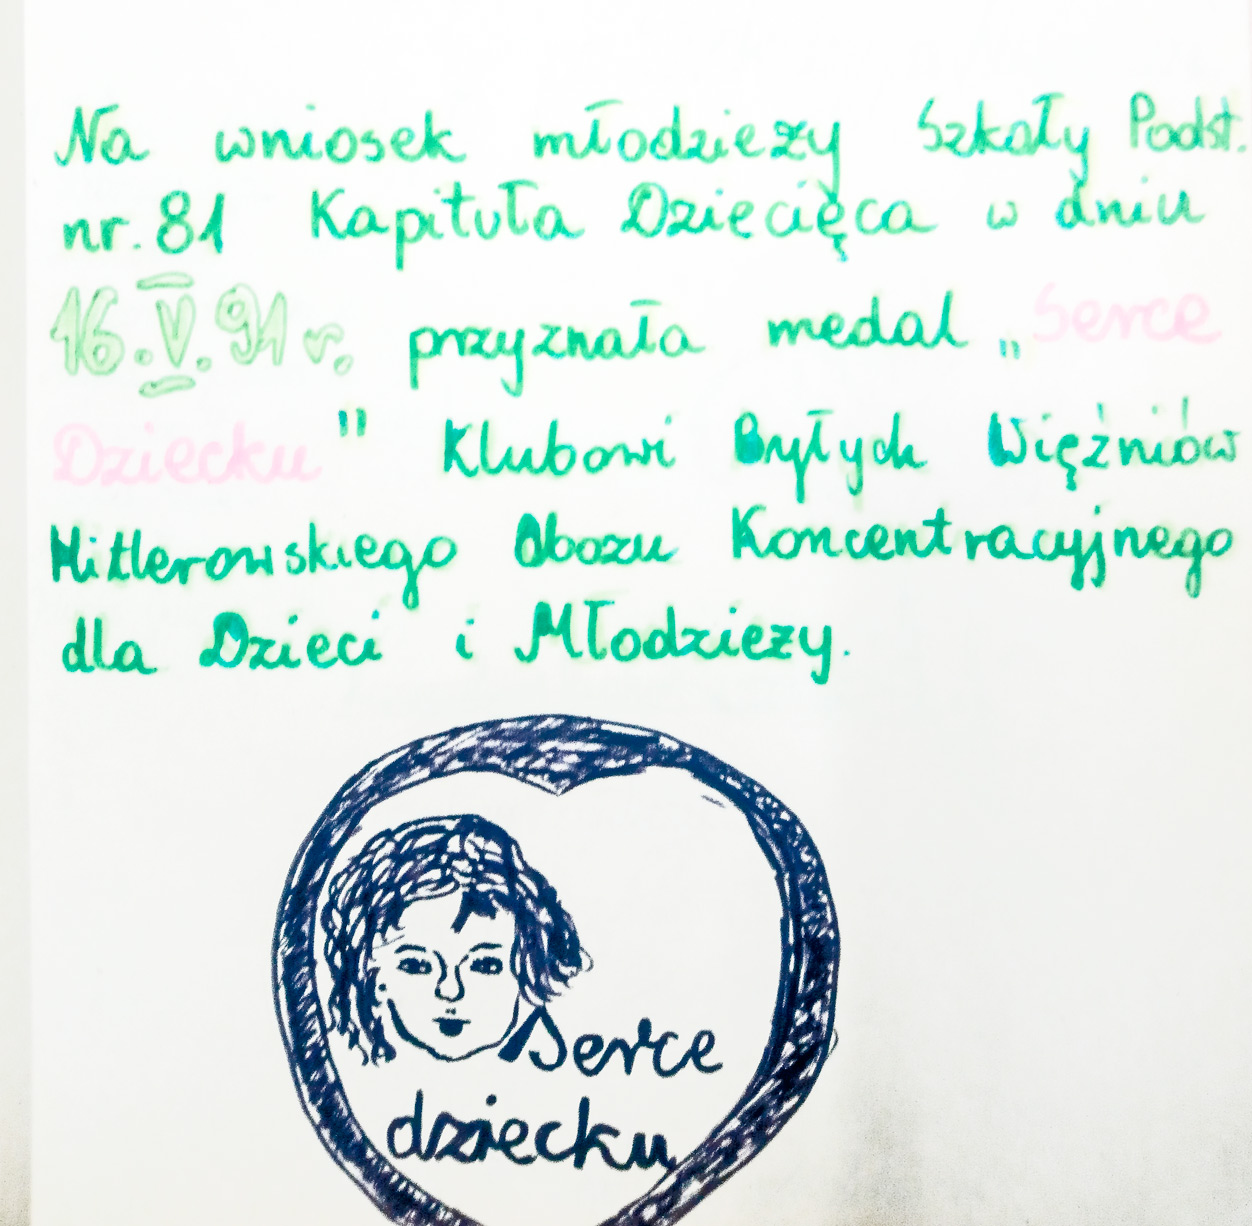 Na wniosek młodzieży Szkoły Podst.
nr. 81 Kapituła Dziecięca w dniu
16.V.91 r. przyznała medal „Serce
Dziecku" Klubowi Byłych Więźniów
Hitlerowskiego Obozu Koncentracyjnego
dla Dzieci i Młodzieży.
Serce
dziecku